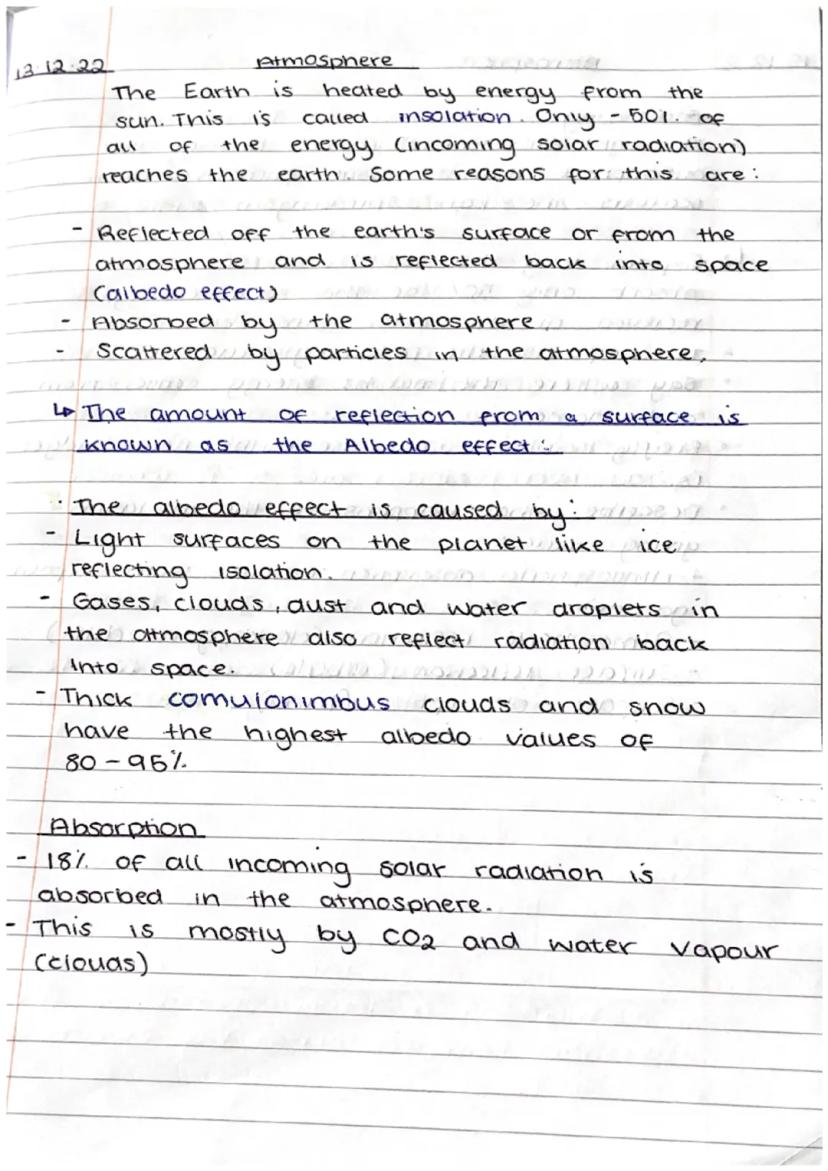 13.12.22 Atmosphere
The Earth is heated by energy from the
sun. This is called insolation. Only - 50%. of
all of the energy (incoming solar radiation)
reaches the earth. Some reasons for this are:
- Reflected off the earth's surface or from the
atmosphere and is reflected back into space
(albedo effect)
- Absorbed by the atmosphere
- Scattered by particles in the atmosphere.
↳ The amount of reflection from a surface is
known as the Albedo effect:
· The albedo effect is caused by:
- Light surfaces on the planet like ice
reflecting isolation.
- Gases, clouds, dust and water droplets in
the atmosphere also reflect radiation back
into space.
- Thick comulonimbus clouds and snow
have the highest albedo values of
80-95%
Absorption
- 18% of all incoming solar radiation is
absorbed in the atmosphere.
- This is mostly by CO2 and water vapour
(clouds)